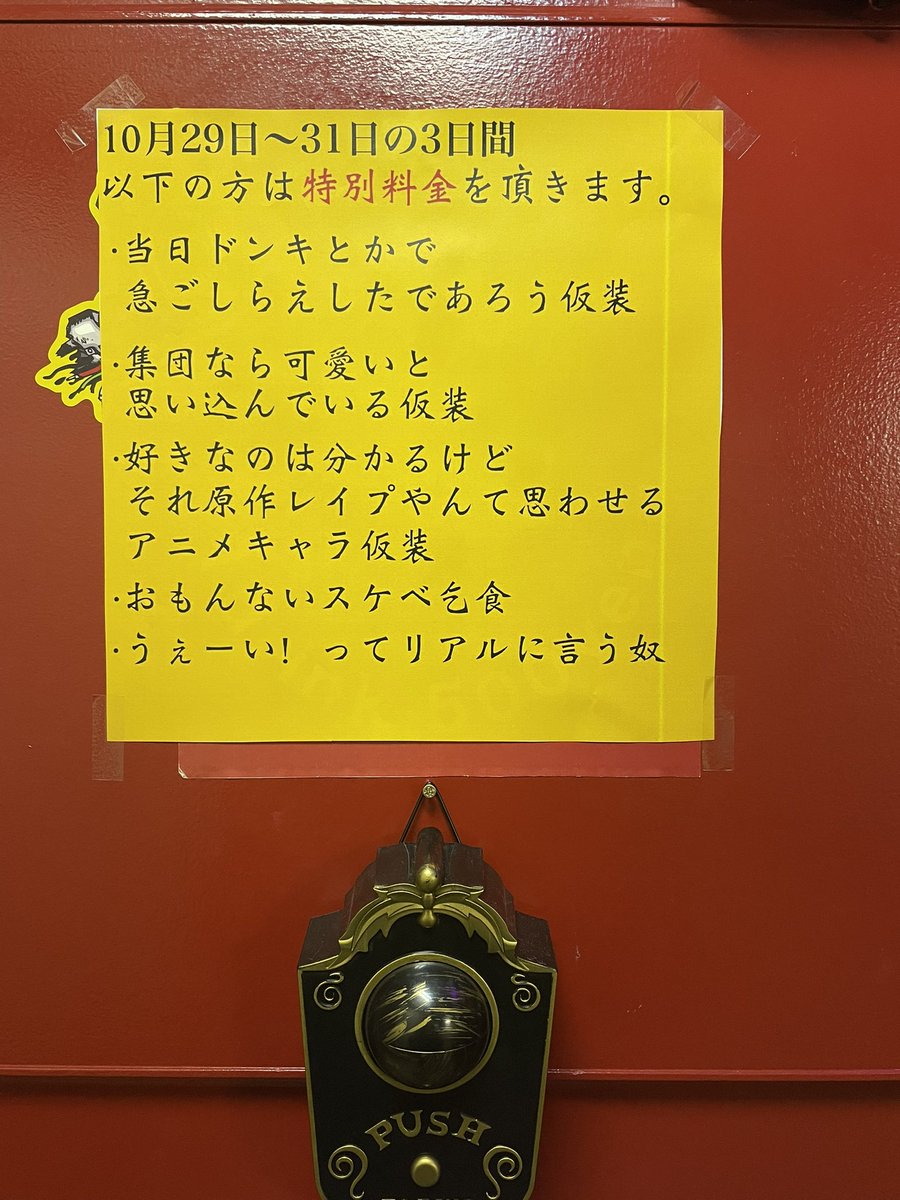 10月29日～31日の3日間
以下の方は特別料金を頂きます。
・当日ドンキとかで
急ごしらえしたであろう仮装
・集団なら可愛いと
思い込んでいる仮装
・好きなのは分かるけど
それ原作レイプやんて思わせる
アニメキャラ仮装
・おもんないスケベ乞食
・うぇーい! ってリアルに言う奴
PUSH